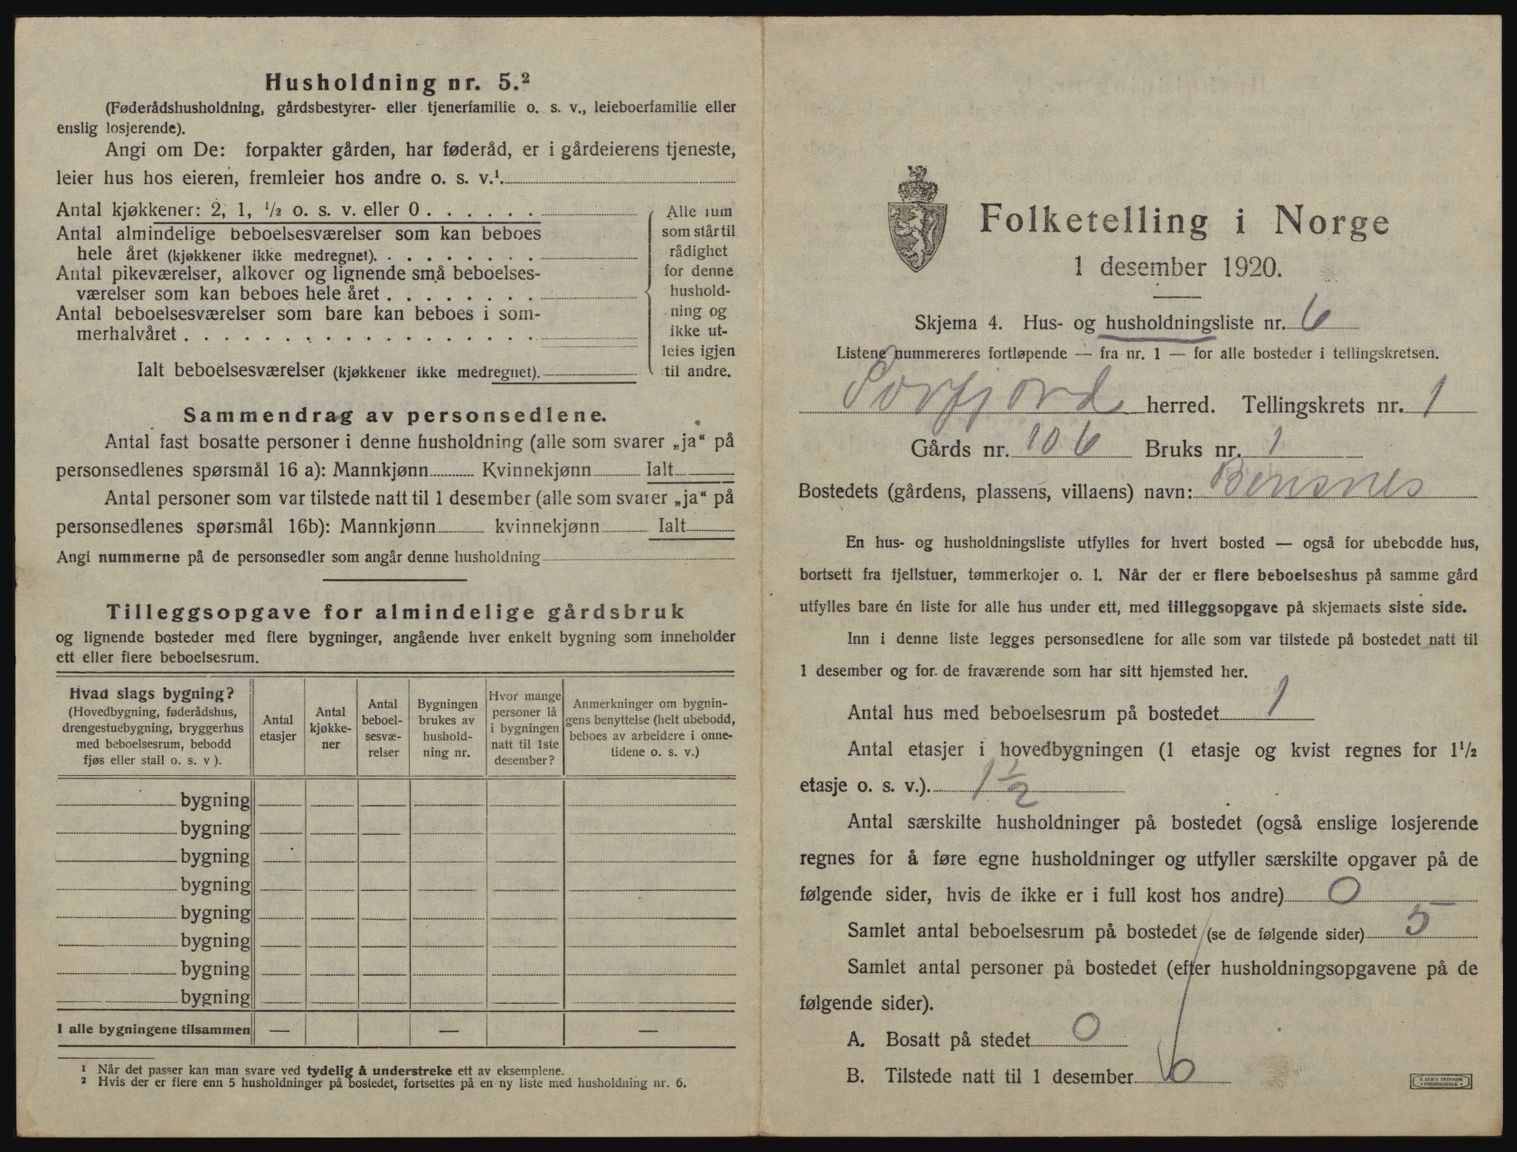 Husholdning nr. 5.²
(Føderådshusholdning, gårdsbestyrer- eller tjenerfamilie o. s. v., leieboerfamilie eller
enslig losjerende).
Angi om De: forpakter gården, har føderåd, er i gårdeierens tjeneste,
leier hus hos eieren, fremleier hos andre o. s. v.¹
Antal kjøkkener: 2, 1, ¹/₂ o. s. v. eller 0
Antal almindelige beboelsesværelser som kan beboes
hele året (kjøkkener ikke medregnet)
Antal pikeværelser, alkover og lignende små beboelses-
værelser som kan beboes hele året
Antal beboelsesværelser som bare kan beboes i som-
merhalvåret
Ialt beboelsesværelser (kjøkkener ikke medregnet)
Alle rum
som står til
rådighet
for denne
hushold-
ning og
ikke ut-
leies igjen
til andre.
Sammendrag av personsedlene.
Antal fast bosatte personer i denne husholdning (alle som svarer „ja“ på
personsedlenes spørsmål 16 a): Mannkjønn Kvinnekjønn Ialt
Antal personer som var tilstede natt til 1 desember (alle som svarer „ja“ på
personsedlenes spørsmål 16b): Mannkjønn kvinnekjønn Ialt
Angi nummerne på de personsedler som angår denne husholdning
Tilleggsopgave for almindelige gårdsbruk
og lignende bosteder med flere bygninger, angående hver enkelt bygning som inneholder
ett eller flere beboelsesrum.
Hvad slags bygning?
(Hovedbygning, føderådshus,
drengestuebygning, bryggerhus
med beboelsesrum, bebodd
fjøs eller stall o. s. v ).
Antal
etasjer
Antal
kjøkke-
ner
Antal
beboel-
sesvæ-
relser
Bygningen
brukes av
hushold-
ning nr.
Hvor mange
personer lå
i bygningen
natt til 1ste
desember?
Anmerkninger om bygnin-
gens benyttelse (helt ubebodd,
beboes av arbeidere i onne-
tidene o. s. v.)
bygning
bygning
bygning
bygning
bygning
bygning
bygning
bygning
I alle bygningene tilsammen — — —
¹ Når det passer kan man svare ved tydelig å understreke ett av eksemplene.
² Hvis der er flere enn 5 husholdninger på bostedet, fortsettes på en ny liste med husholdning nr. 6.
Folketelling i Norge
1 desember 1920.
Skjema 4. Hus- og husholdningsliste nr. 6
Listene nummereres fortløpende — fra nr. 1 — for alle bosteder i tellingskretsen.
Sørfjord herred. Tellingskrets nr. 1
Gårds nr. 106 Bruks nr. 1
Bostedets (gårdens, plassens, villaens) navn: Bensnes
En hus- og husholdningsliste utfylles for hvert bosted — også for ubebodde hus,
bortsett fra fjellstuer, tømmerkojer o. l. Når der er flere beboelseshus på samme gård
utfylles bare én liste for alle hus under ett, med tilleggsopgave på skjemaets siste side.
Inn i denne liste legges personsedlene for alle som var tilstede på bostedet natt til
1 desember og for de fraværende som har sitt hjemsted her.
Antal hus med beboelsesrum på bostedet 1
Antal etasjer i hovedbygningen (1 etasje og kvist regnes for 1¹/₂
etasje o. s. v.). 1 ½
Antal særskilte husholdninger på bostedet (også enslige losjerende
regnes for å føre egne husholdninger og utfyller særskilte opgaver på de
følgende sider, hvis de ikke er i full kost hos andre) 0
Samlet antal beboelsesrum på bostedet (se de følgende sider) 5
Samlet antal personer på bostedet (efter husholdningsopgavene på de
følgende sider).
A. Bosatt på stedet 0
B. Tilstede natt til 1 desember 0